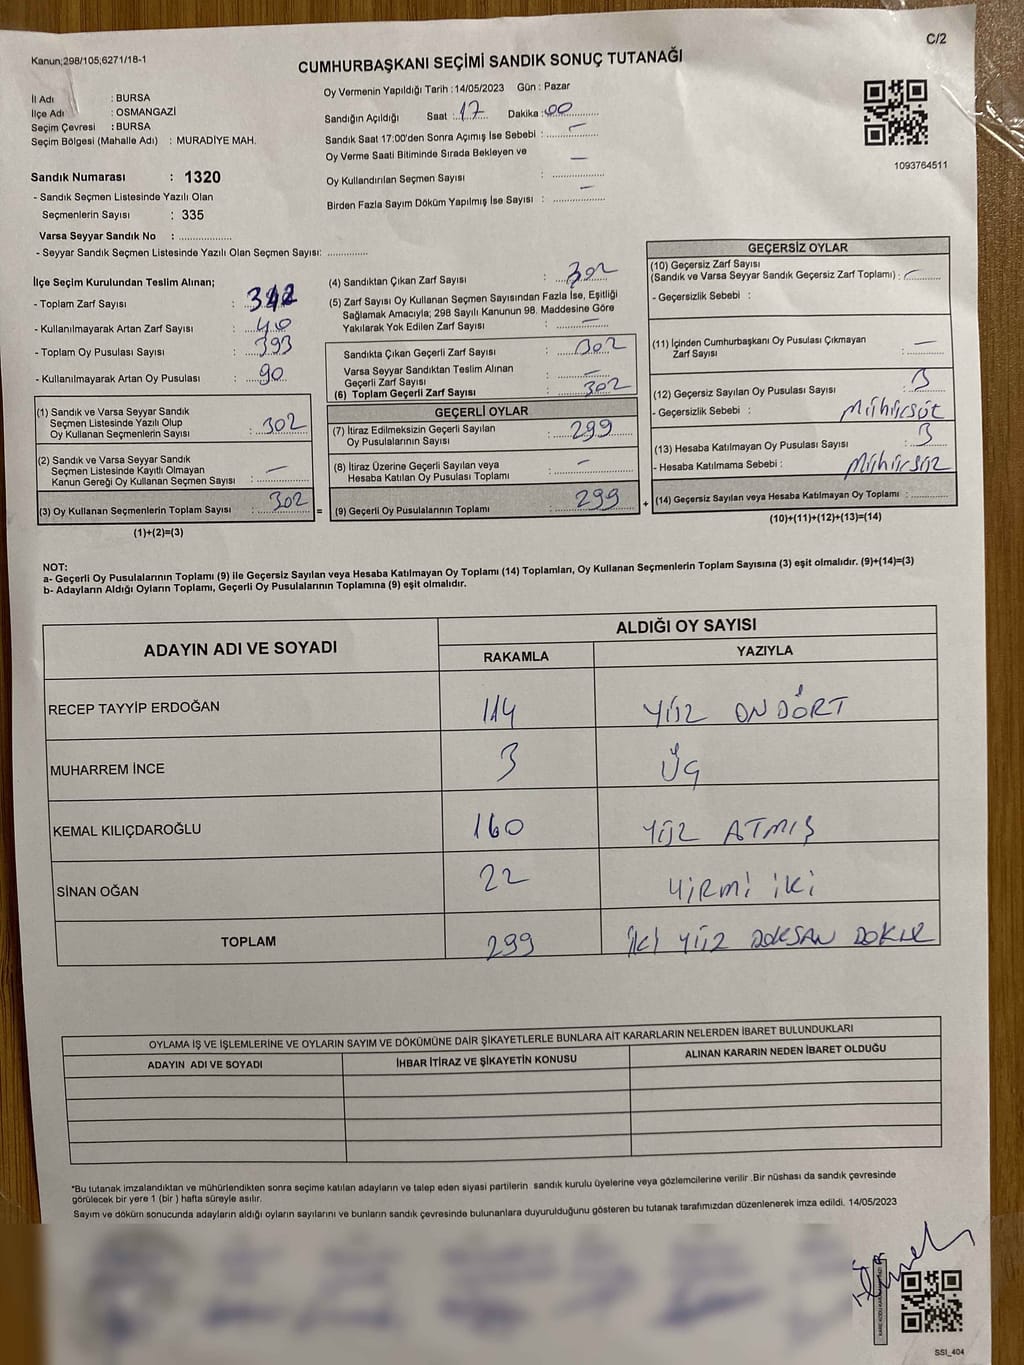 C/2
Kanun;298/105,6271/18-1
CUMHURBAŞKANI SEÇİMİ SANDIK SONUÇ TUTANAĞI
İl Adı : BURSA
İlçe Adı : OSMANGAZİ
Seçim Çevresi : BURSA
Seçim Bölgesi (Mahalle Adı) : MURADİYE MAH.
Oy Vermenin Yapıldığı Tarih :14/05/2023 Gün : Pazar
Sandığın Açıldığı Saat :17 Dakika :00
Sandık Saat 17:00'den Sonra Açımış İse Sebebi : –
Oy Verme Saati Bitiminde Sırada Bekleyen ve
Oy Kullandırılan Seçmen Sayısı : –
Birden Fazla Sayım Döküm Yapılmış İse Sayısı : –
1093764511
Sandık Numarası : 1320
- Sandık Seçmen Listesinde Yazılı Olan
Seçmenlerin Sayısı : 335
Varsa Seyyar Sandık No :
- Seyyar Sandık Seçmen Listesinde Yazılı Olan Seçmen Sayısı:
İlçe Seçim Kurulundan Teslim Alınan;
- Toplam Zarf Sayısı : 342
- Kullanılmayarak Artan Zarf Sayısı : 40
- Toplam Oy Pusulası Sayısı : 393
- Kullanılmayarak Artan Oy Pusulası : 90
(1) Sandık ve Varsa Seyyar Sandık
Seçmen Listesinde Yazılı Olup
Oy Kullanan Seçmenlerin Sayısı : 302
(2) Sandık ve Varsa Seyyar Sandık
Seçmen Listesinde Kayıtlı Olmayan
Kanun Gereği Oy Kullanan Seçmen Sayısı : –
(3) Oy Kullanan Seçmenlerin Toplam Sayısı : 302 =
(1)+(2)=(3)
(4) Sandıktan Çıkan Zarf Sayısı : 302
(5) Zarf Sayısı Oy Kullanan Seçmen Sayısından Fazla İse, Eşitliği
Sağlamak Amacıyla; 298 Sayılı Kanunun 98. Maddesine Göre
Yakılarak Yok Edilen Zarf Sayısı : –
Sandıkta Çıkan Geçerli Zarf Sayısı : 302
Varsa Seyyar Sandıktan Teslim Alınan
Geçerli Zarf Sayısı : –
(6) Toplam Geçerli Zarf Sayısı : 302
GEÇERLİ OYLAR
(7) İtiraz Edilmeksizin Geçerli Sayılan
Oy Pusulalarının Sayısı : 299
(8) İtiraz Üzerine Geçerli Sayılan veya
Hesaba Katılan Oy Pusulası Toplamı : –
(9) Geçerli Oy Pusulalarının Toplamı : 299 +
GEÇERSİZ OYLAR
(10) Geçersiz Zarf Sayısı
(Sandık ve Varsa Seyyar Sandık Geçersiz Zarf Toplamı) : –
- Geçersizlik Sebebi :
(11) İçinden Cumhurbaşkanı Oy Pusulası Çıkmayan
Zarf Sayısı : –
(12) Geçersiz Sayılan Oy Pusulası Sayısı : 3
- Geçersizlik Sebebi : Mühürsüz
(13) Hesaba Katılmayan Oy Pusulası Sayısı : 3
- Hesaba Katılmama Sebebi : Mühürsüz
(14) Geçersiz Sayılan veya Hesaba Katılmayan Oy Toplamı :
(10)+(11)+(12)+(13)=(14)
NOT:
a- Geçerli Oy Pusulalarının Toplamı (9) ile Geçersiz Sayılan veya Hesaba Katılmayan Oy Toplamı (14) Toplamları, Oy Kullanan Seçmenlerin Toplam Sayısına (3) eşit olmalıdır. (9)+(14)=(3)
b- Adayların Aldığı Oyların Toplamı, Geçerli Oy Pusulalarının Toplamına (9) eşit olmalıdır.
ADAYIN ADI VE SOYADI
ALDIĞI OY SAYISI
RAKAMLA YAZIYLA
RECEP TAYYİP ERDOĞAN 114 YÜZ ONDÖRT
MUHARREM İNCE 3 ÜÇ
KEMAL KILIÇDAROĞLU 160 YÜZ ATMIŞ
SİNAN OĞAN 22 YİRMİ İKİ
TOPLAM 299 İKİ YÜZ DOKSAN DOKUZ
OYLAMA İŞ VE İŞLEMLERİNE VE OYLARIN SAYIM VE DÖKÜMÜNE DAİR ŞİKAYETLERLE BUNLARA AİT KARARLARIN NELERDEN İBARET BULUNDUKLARI
ADAYIN ADI VE SOYADI İHBAR İTİRAZ VE ŞİKAYETİN KONUSU ALINAN KARARIN NEDEN İBARET OLDUĞU
*Bu tutanak imzalandıktan ve mühürlendikten sonra seçime katılan adayların ve talep eden siyasi partilerin sandık kurulu üyelerine veya gözlemcilerine verilir .Bir nüshası da sandık çevresinde
görülecek bir yere 1 (bir ) hafta süreyle asılır.
Sayım ve döküm sonucunda adayların aldığı oyların sayılarını ve bunların sandık çevresinde bulunanlara duyurulduğunu gösteren bu tutanak tarafımızdan düzenlenerek imza edildi. 14/05/2023
SSI_404